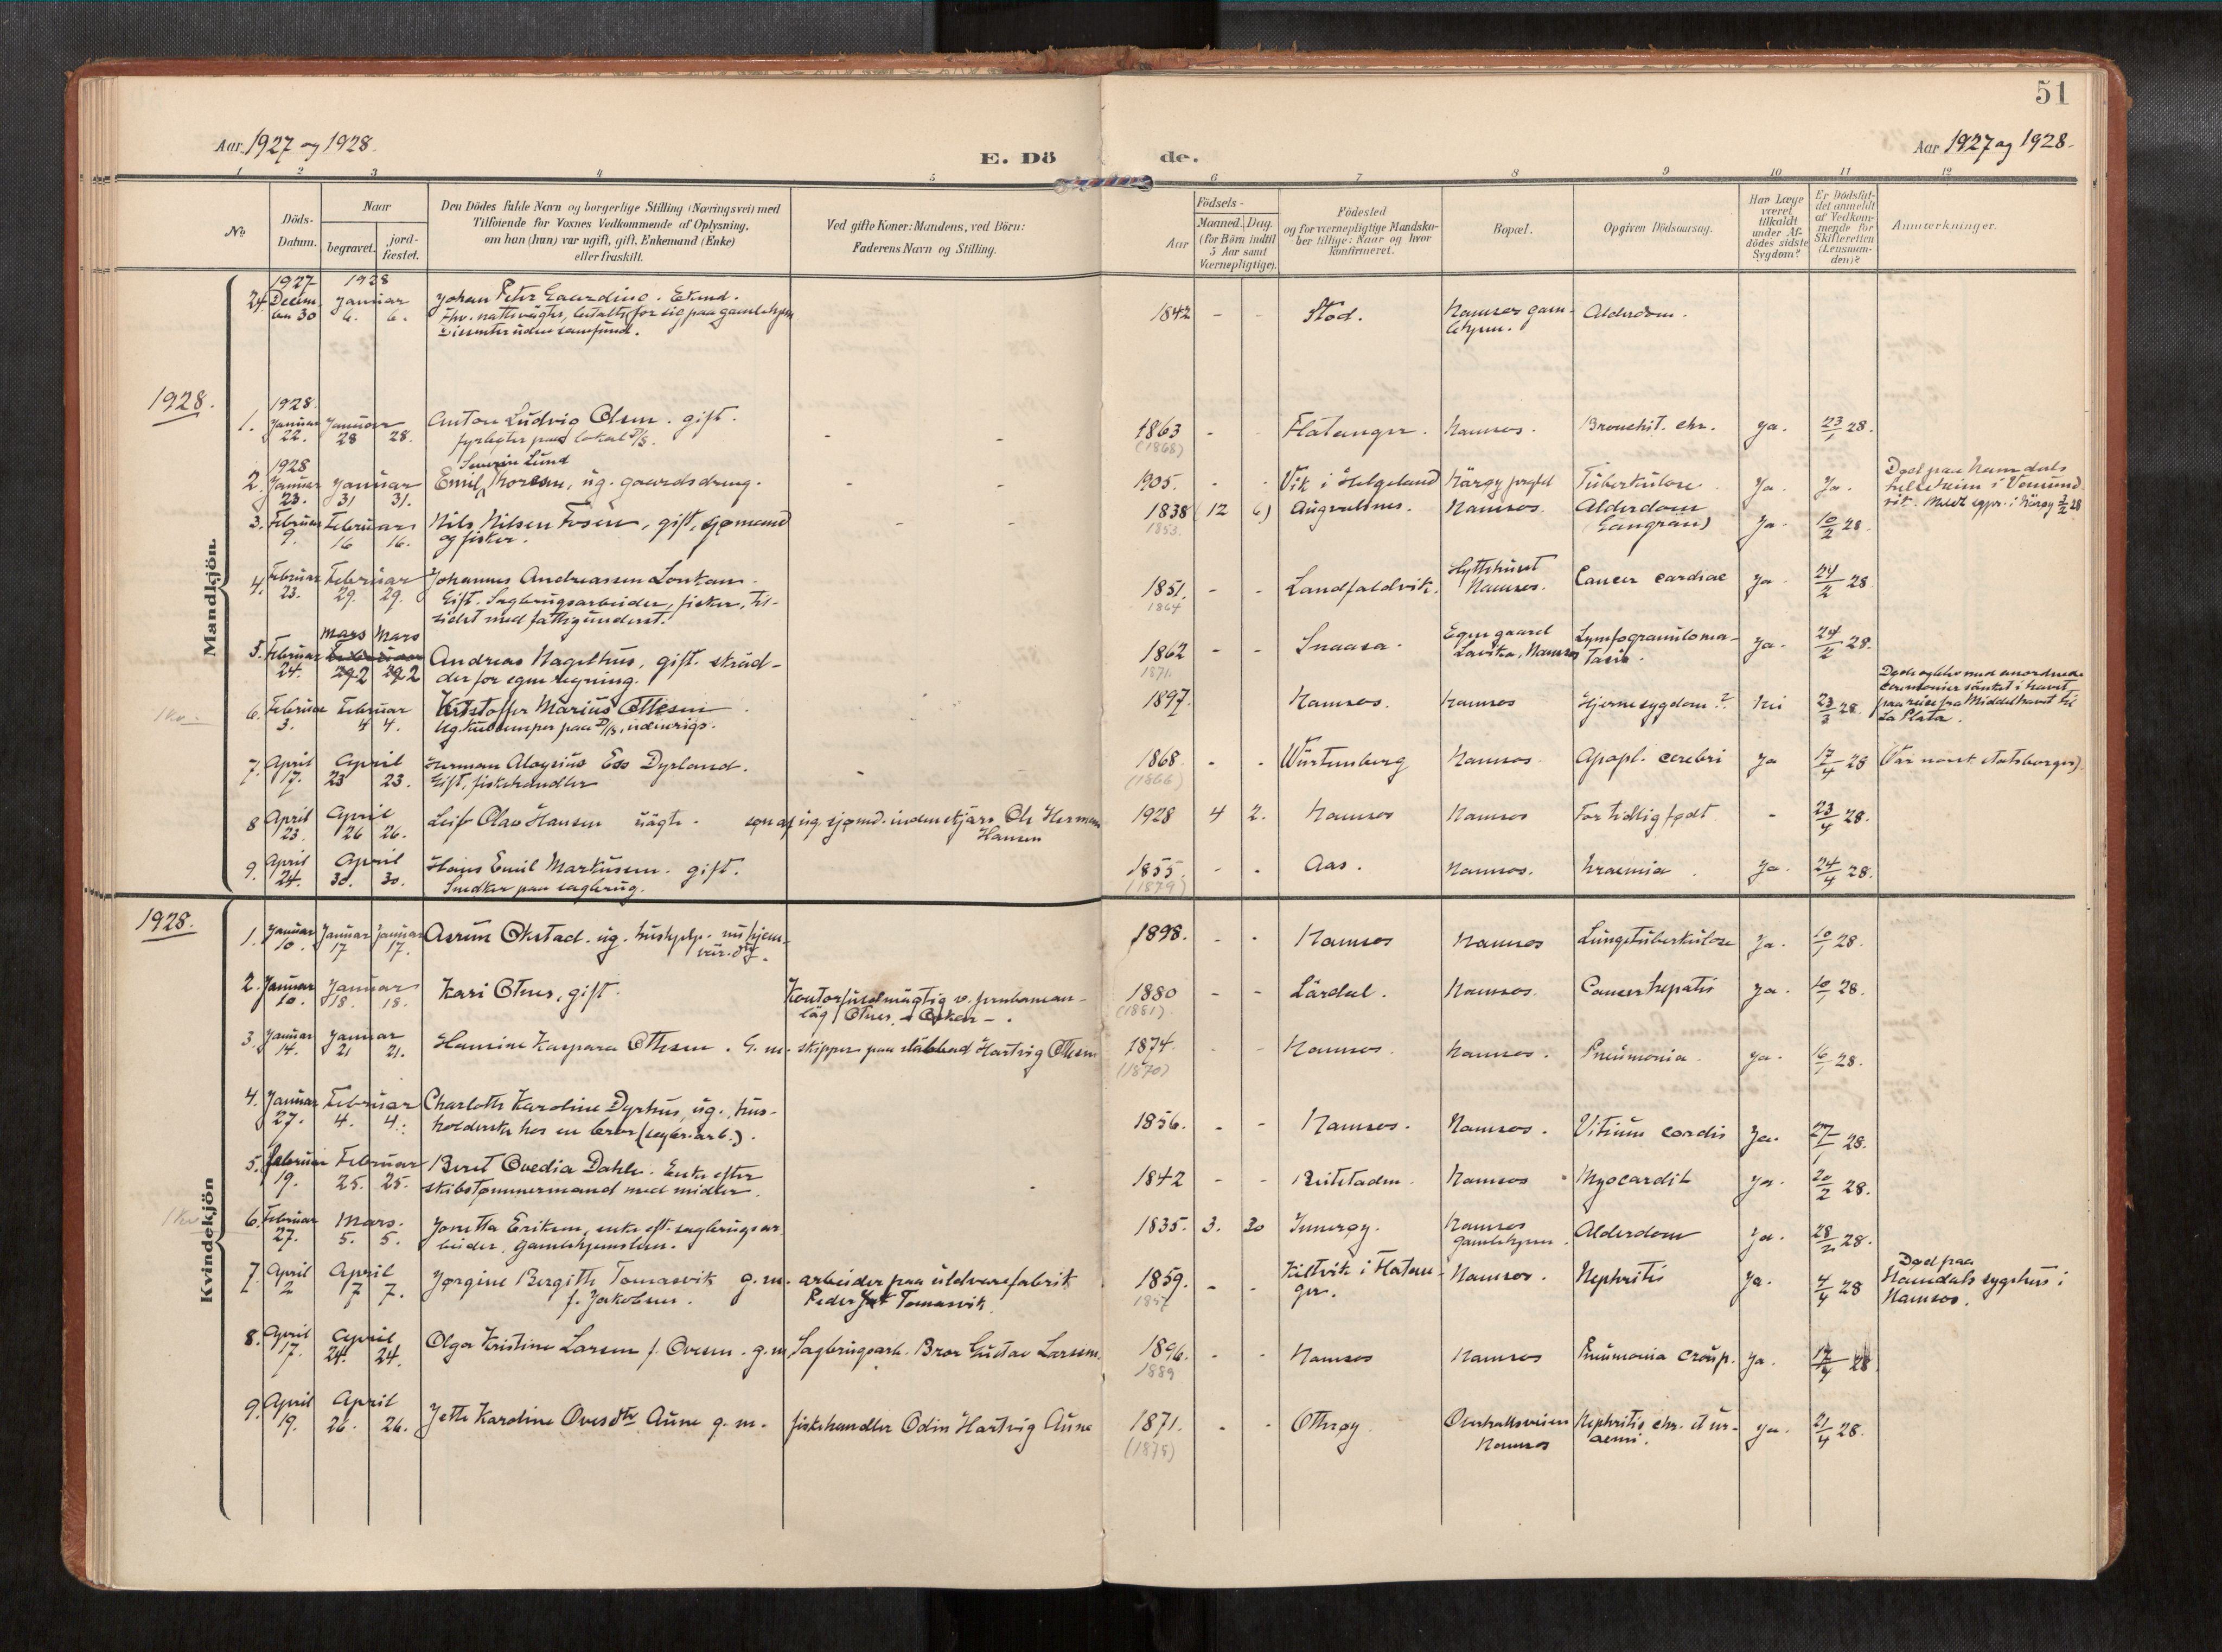 51
Aar 1927 og 1928.
E. Dö de.
Aar 1927 og 1928.
1 2 3 4 5 6 7 8 9 10 11 12
No
Döds-Datum.
Naar
begravet.
jord-fæstet.
Den Dödes fulde Navn og borgerlige Stilling (Næringsvei) med
Tilföiende for Voxnes Vedkommende af Oplysning,
om han (hun) var ugift, gift, Enkemand (Enke)
eller fraskilt.
Ved gifte Koner: Mandens, ved Börn:
Faderens Navn og Stilling.
Födsels-
Aar
Maaned. Dag.
(for Börn indtil
5 Aar samt
Værnepligtige).
Födested
og for værnepligtige Mandska-
ber tillige: Naar og hvor
konfirmeret.
Bopæl.
Opgiven Dödsaarsag.
Har Læge
været
tilkaldt
under Af-
dödes sidste
Sygdom?
Er Dödsfal-
det anmeldt
af Vedkom-
mende for
Skifteretten
(Lensman-
den)?
Anmærkninger.
Mandkjön.
1927 1928
24. Decem- Januar Johan Peter 1842 - - Stod. Namsos gam- Alderdom.
ber 30 6. 6. nattevægter, for sig paa gamlehjem lehjem.
Dissenter uden samfund.
1928.
1928.
1. Januar Januar Anton Ludvig Olsen. gift. - - 1863 - - Flatanger. Namsos. Bronchit. chr. Ja. 23/1 28.
22. 28 28. fyrbøter paa lokal D/S. (1868)
1928 Severin Lund
2. Januar Januar Emil, ug. gaardsdreng. - - 1905. - - Vik i Helgeland Tuberkulose Ja. Ja. Død paa Namdals
23. 31 31. helseheim i
3. Februar Februar Nils Nilsen Fosen, gift, sjømand - - 1838 (12 6) Namsos. Alderdom Ja. 10/2 28.
9. 16 16. og fisker. 1853. (Gangrän)
4. Februar Februar Johannes Andreassen 1851. - - Landfaldvik. Namsos. Cancer cardiae Ja. 24/2 28.
23. 29. 29. Gift. Sagbrugsarbeider, fisker, til- 1864
sidst med fattigunderst.
Mars Mars
5. Februar Andreas Nagelhus, gift. skræd- 1862 - - Snaasa. Egen gaard Lymfogranuloma- Ja. 24/2 28.
24. 2 2 der for egen regning. 1871. Lavika, Namsos tosis.
6. Februar Februar Kristoffer Marius Ottesen 1897. Namsos. Namsos Hjernesygdom? Nei 23/3 28. Døde og blev med anordnede
3. 4 4. Ug. paa D/S, indenrigs. ceremonier sænket i havet
paa reise fra Middelhavet til
La Plata.
7. April April Herman Aloysius Ess Dyrland. - 1868 - - Würtemberg Namsos. Apopl. cerebri Ja 17/4 28 (Var norsk statsborger).
17. 23 23. Gift, fiskehandler (1866)
8 April April Leif Olav Hansen uægte. søn af ug. sjømd. indenskjærs Ole Herman 1928 4 2. Namsos Namsos For tidlig født. - 23/4 28.
23. 26 26. Hansen
9. April April Hans Emil Markussen. gift. 1855. - - Aas. Namsos. Uraemia. Ja. 24/4 28.
24. 30. 30. Snedker paa sagbrug. (1879)
Kvindekjön
1928.
1. Januar Januar Januar Okstad. ug. hushjelp. nu hjem- 1898. - - Namsos Namsos Lungetuberkulose Ja. 10/1 28.
10. 17 17.
2. Januar Januar Kari Otnes, gift. Kontorfuldmægtig v. jernbanean- 1880 - - Lärdal. Namsos. Cancer hepatis Ja. 10/1 28.
10. 18. 18. læg Otnes, (1881)
3. Januar Januar Hansine Kaspara Ottesen. G. m. skipper paa Hartvig Ottesen 1874. - - Namsos. Namsos. Pneumonia. Ja. 16/1 28.
14. 21 21. (1870)
4. Januar Februar Charlotte Karoline Dyrhus, ug., hus- 1856. - - Namsos. Namsos. Vitium cordis Ja. 27/1 28.
27. 4. 4. holderske hos en bror (sagbr.arb.).
5. Februar Februar Beret Ovedia Dahle. Enke efter - 1842 - - Beitstaden. Namsos Myocardit Ja. 20/2 28.
19. 25. 25. skibstømmermand med midler.
6. Februar Mars. Jonetta Eriksen, enke eft. sagbrugsar- 1835. 3. 30 Inderøy. Namsos Alderdom Ja. 28/2 28.
27. 5. 5. beider. Gamlehjemslem. gamlehjem.
7. April April Jørgine Bergitte Tomasvik g. m. arbeider paa uldvarefabrik 1859. - - i Flatan- Namsos. Nephritis Ja. 4/4 28 Død paa
2 7 7. f. Jakobsen. Peder Tomasvik. 1857 ger. Namdals sygehus i
Namsos.
8. April April Olga Kristine Larsen f. Ovesen. g. m. Sagbrugsarb. Bror Gustav Larsen. 1896. - - Namsos Namsos Pneumonia croup. Ja. 17/4 28
17. 24. 24. 1889
9. April April Jette Karoline Ovesdtr Aune g. m. fiskehandler Odin Hartvig Aune 1871. - - Otterøy Overhallsveien Nephritis chr. et ur- Ja. 21/4 28.
19. 26. 26. (1875) Namsos aemi.